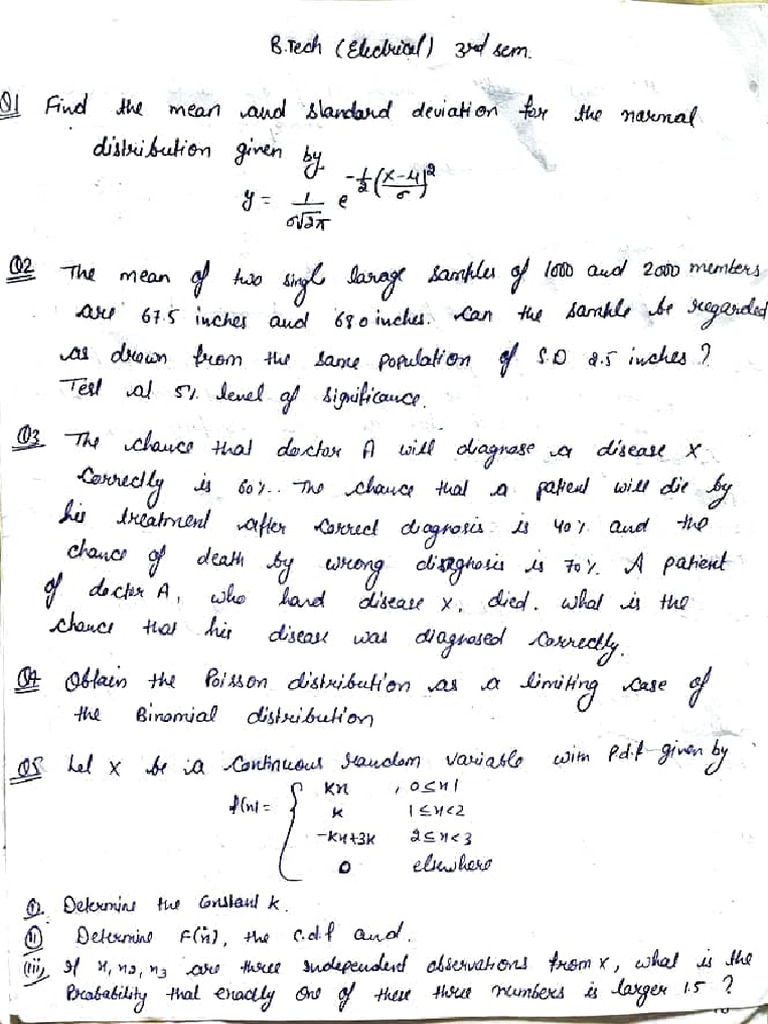 B.Tech (Electrical) 3rd sem.
Q1 Find the mean and standard deviation for the normal
distribution given by
y = 1/σ√2π e^-½(x-μ/σ)²
Q2 The mean of two singl larage samples of 1000 and 2000 members
are 67.5 inches and 68.0 inches. Can the sample be regarded
as drawn from the same population of S.D 2.5 inches?
Test at 5% level of significance.
Q3 The chance that doctor A will diagnose a disease X
Correctly is 60%. The chance that a patient will die by
his treatment after correct diagnosis is 40% and the
chance of death by wrong diagnosis is 70%. A patient
of docter A, who hand disease X, died. what is the
chance that his disease was diagnosed correctly.
Q4 Obtain the Poisson distribution as a limiting case of
the Binomial distribution
Q5 Let X be a Continuous random variable with P.d.f given by
f(x) = { kx , 0≤x1
k 1≤x<2
-kx+3k 2≤x<3
0 elsewhere
Determine the Constant k.
(ii) Determine F(x), the C.d.f and.
(iii) If x, x2, x3 are three independent observations from X, what is the
Probability that exactly one of these three numbers is larger 1.5 ?